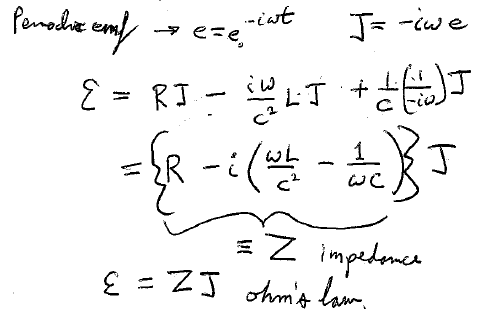 Periodic emf → e = e₀ e^{-iωt}   J = -iωe
ℰ = RJ - \frac{iω}{c²} LJ + \frac{1}{C} \left(\frac{1}{-iω}\right) J
= \left\{ R - i \left( \frac{ωL}{c²} - \frac{1}{ωC} \right) \right\} J
≡ Z impedance
ℰ = ZJ ohm's law.